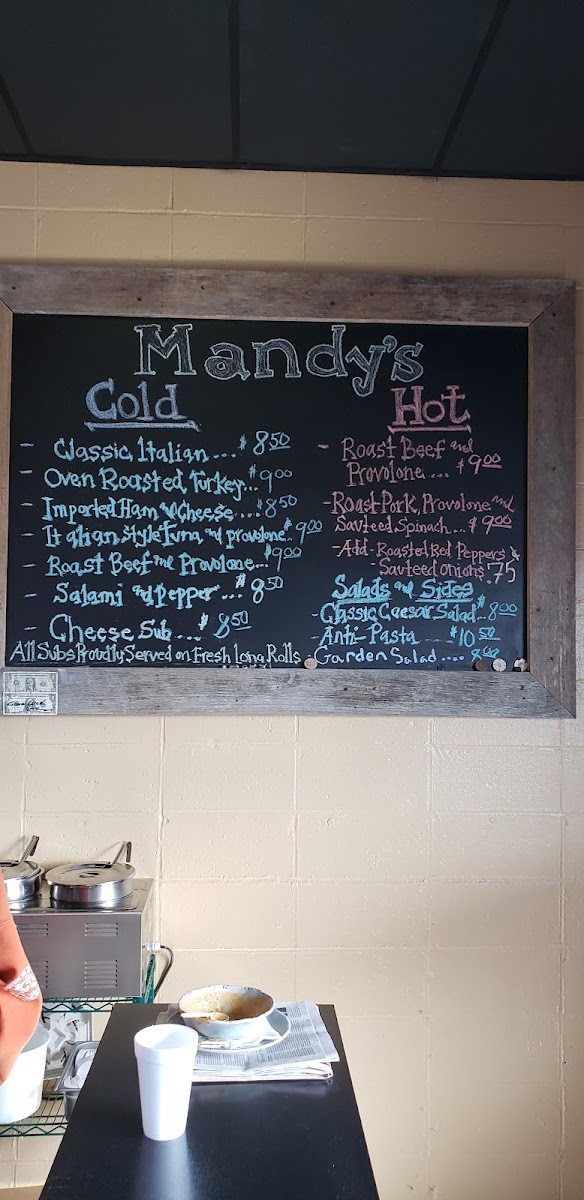 Mandy's
Cold
- Classic Italian ... $8.50
- Oven Roasted Turkey... $9.00
- Imported Ham and Cheese .... $8.50
- Italian Style Tuna and provolone.. $9.00
- Roast Beef and Provolone... $9.00
- Salami and Pepper ... $8.50
- Cheese Sub ... $8.50
All Subs Proudly Served on Fresh Long Rolls
Hot
- Roast Beef and
Provolone ... $9.00
- Roast Pork, Provolone and
Sauteed Spinach... $9.00
- Add - Roasted Red Peppers &
- Sauteed Onions .75
Salads and Sides
- Classic Caesar Salad.. $8.00
- Anti-Pasta ...... $10.50
- Garden Salad.... 8.00